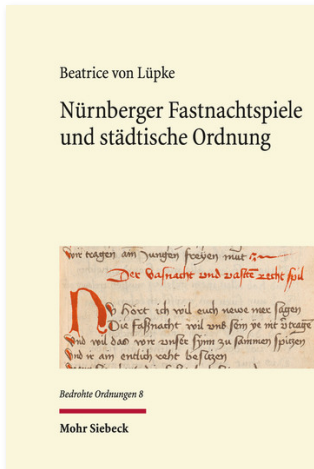 Beatrice von Lüpke
Nürnberger Fastnachtspiele
und städtische Ordnung
wir tragen am Jungen freyen mut
Der vasnacht vnd vasten recht spil
Nu hört ich wil euch newe mer sagen
Die faßnacht wil vnd sein
vnd wil das wir vnser synn zu sammen spitzen
vnd ir am entlich reht besitzen
Bedrohte Ordnungen 8
Mohr Siebeck